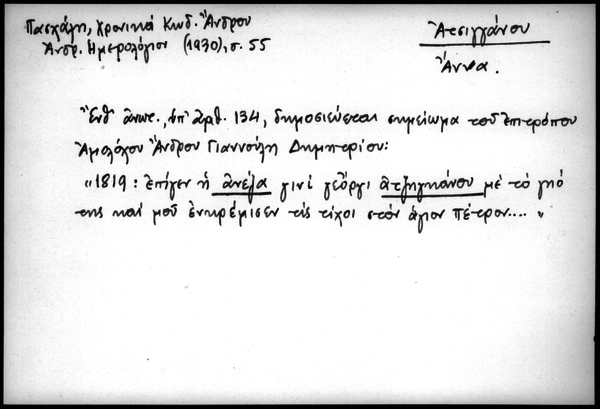 Πασχάλη, Χρονικά Κωδ. Ἄνδρου
Ἀνδρ. Ἡμερολόγιον (1930), σ. 55
Ἀτσιγγάνου
Ἄννα.
Ἔνθ' ἄνωτ., ὑπ' ἀρθ. 134, δημοσιεύεται σημείωμα τοῦ ἐπιτρόπου
Ἀμολόχου Ἄνδρου Γιαννούλη Δημητρίου:
«1819: ἐπίγεν ἡ ἀνέζα γινί γεὅργι ἀτζηγκάνου μέ τό γιό
της καί μοῦ ἐνκρέμισεν τίς τίχοι στόν ἅγιον πέτρον.... »